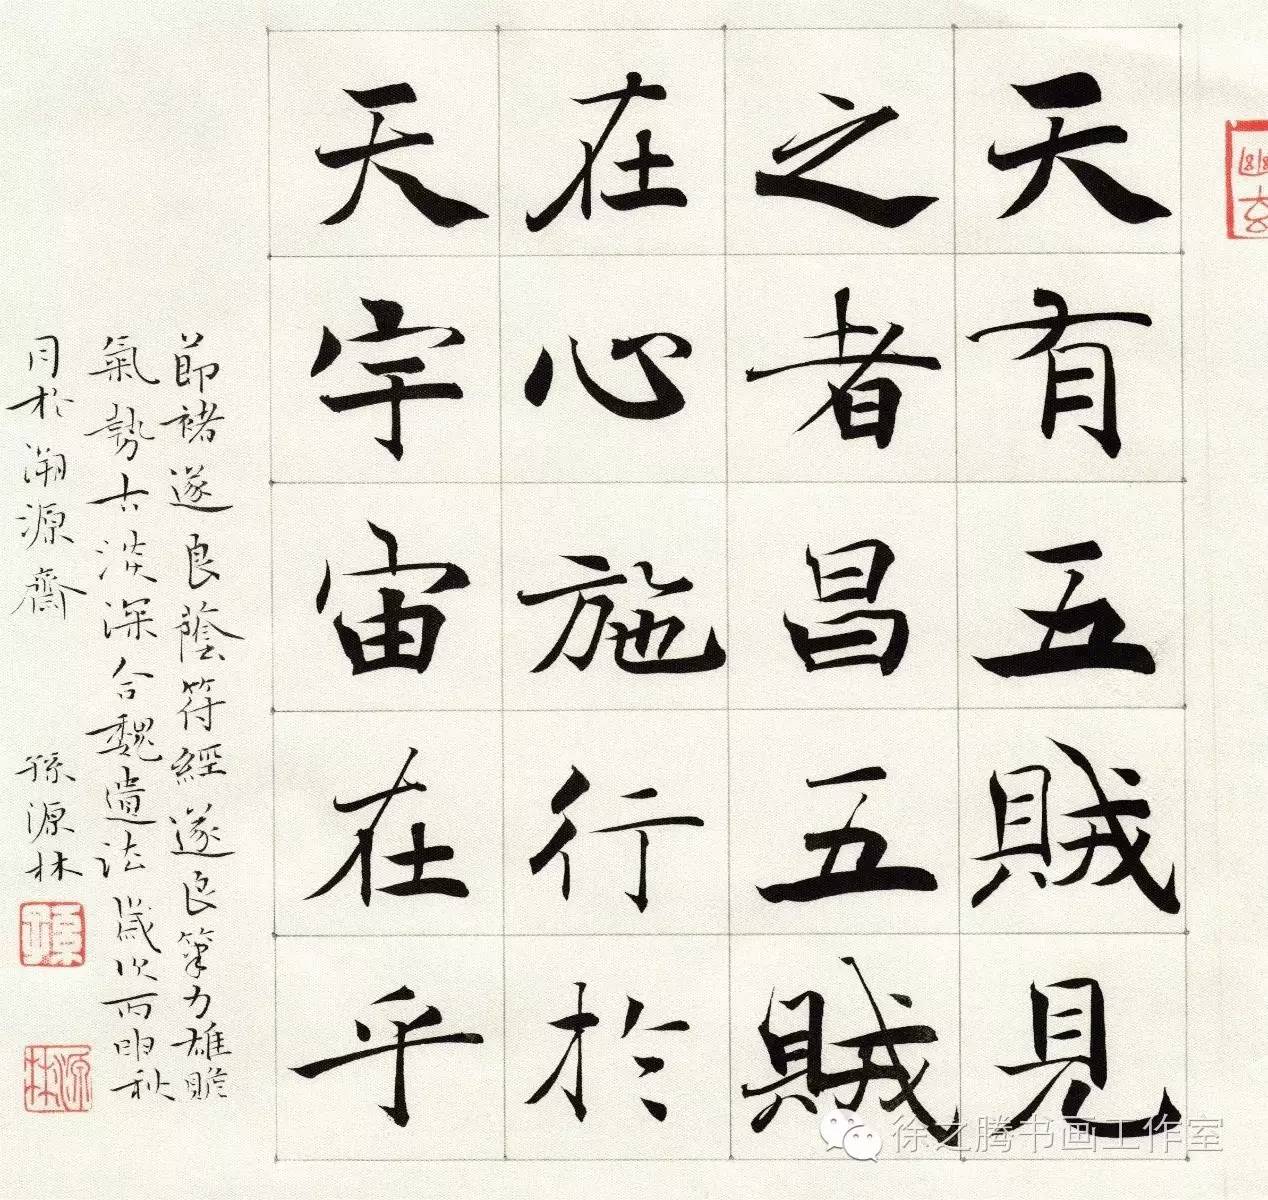 幽玄
天有五賊見
之者昌五賊
在心施行於
天宇宙在乎
節褚遂良蔭符經遂良筆力雄贍
氣勢古淡深合魏遺法歲次丙申秋
月於溯源齋 孫源林
孫
源林
徐之腾书画工作室